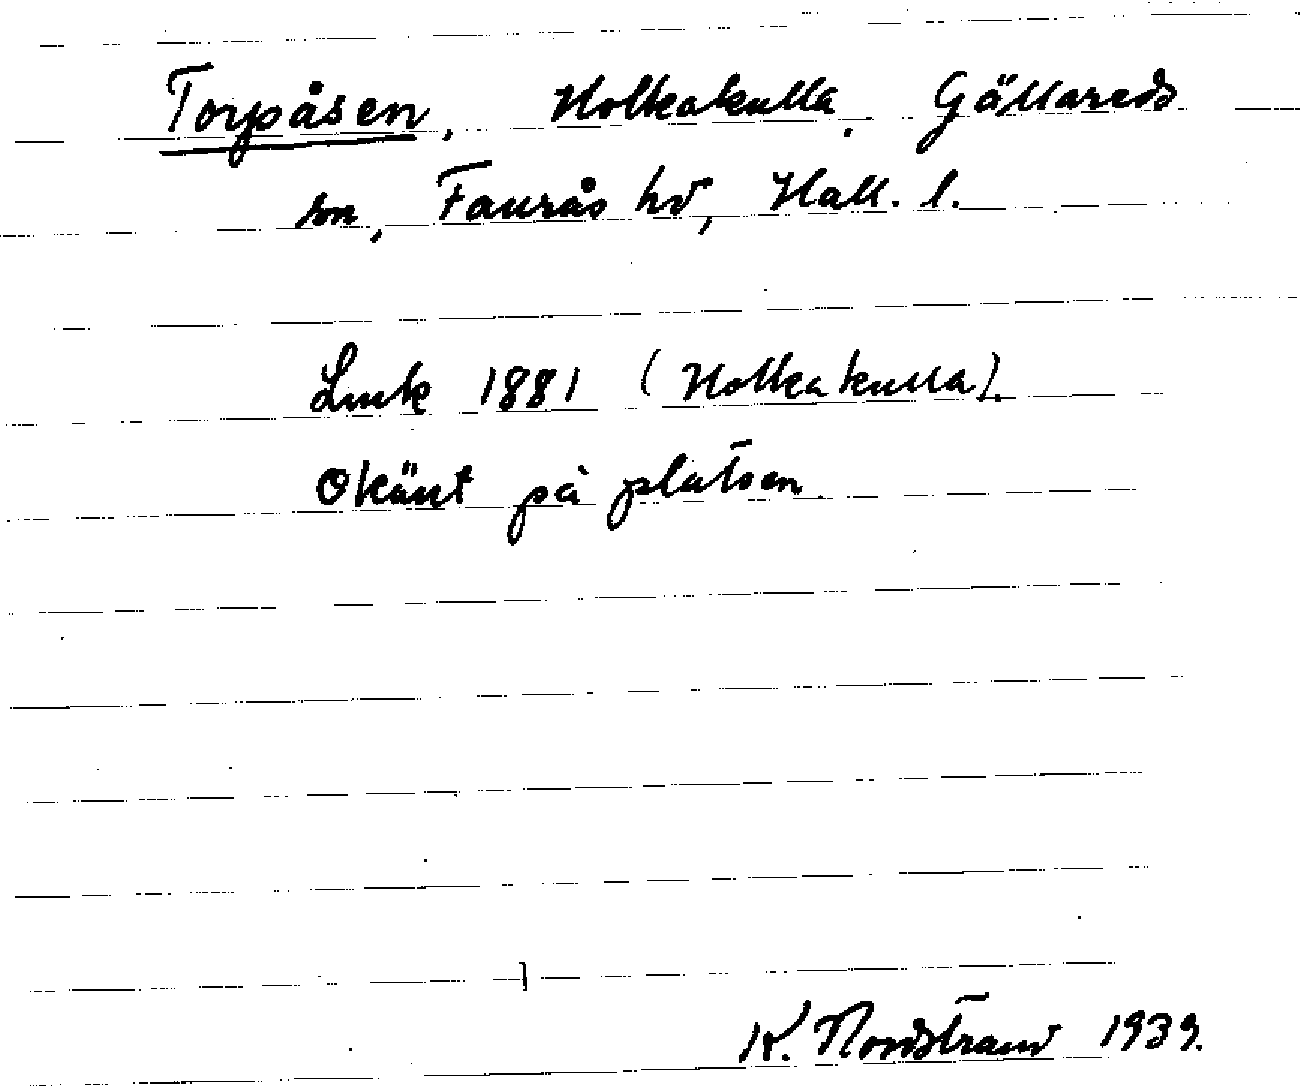 Torpåsen, Holkakulla, Gällareds
sn, Faurås hd, Hall. l.
Lmk 1881 (Holkakulla).
Okänt på platsen.
K. Nordstrand 1939.